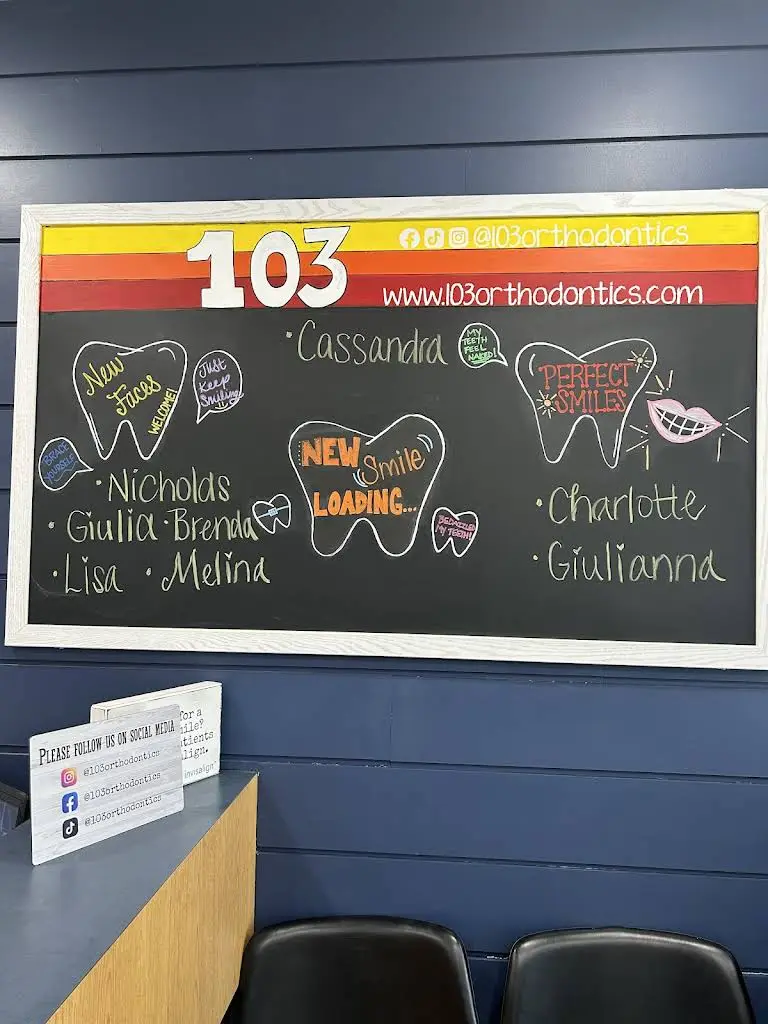 103
@103orthodontics
www.103orthodontics.com
New
Faces
WELCOME!
Just
Keep
Smiling
BRACE
YOURSELF
• Nicholas
• Giulia • Brenda
• Lisa • Melina
• Cassandra
MY
TEETH
FEEL
NAKED!
NEW Smile
LOADING...
BEDAZZLED
MY TEETH!
PERFECT
SMILES
• Charlotte
• Giulianna
PLEASE FOLLOW US ON SOCIAL MEDIA
@103orthodontics
@103orthodontics
@103orthodontics
for a
ile?
tients
lign.
invisalign